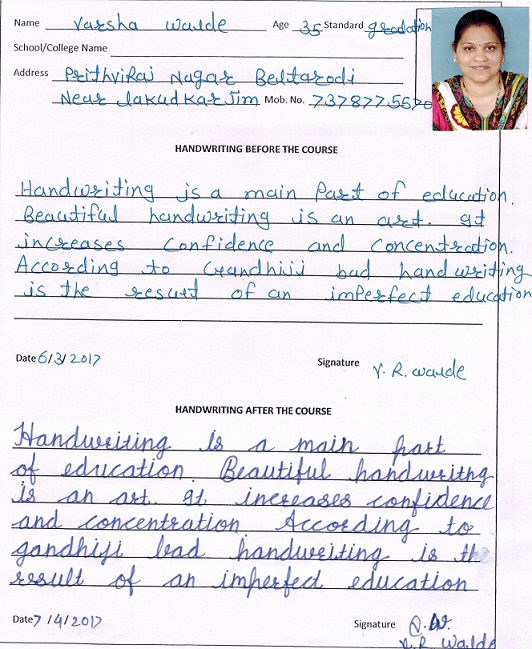 Name Varsha Walde Age 35 Standard gradation
School/College Name
Address PrithviRaj Nagar Beltarodi
Near Lakudkar Jim Mob. No. 7378775570
HANDWRITING BEFORE THE COURSE
Handwriting is a main Part of education.
Beautiful handwriting is an art. It
increases Confidence and Concentration.
According to Gandhiji bad handwriting
is the result of an imPerfect education
Date 6/3/2017 Signature V. R. Walde
HANDWRITING AFTER THE COURSE
Handwriting is a main part
of education Beautiful handwritng
is an art. It increases confidence
and concentration According to
gandhiji bad handwriting is the
result of an imperfect education
Date 7/4/2017 Signature
V.R Walde